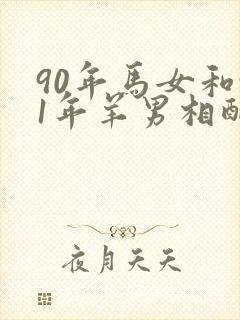 90年馬女和
1年羊男相配
夜月天天